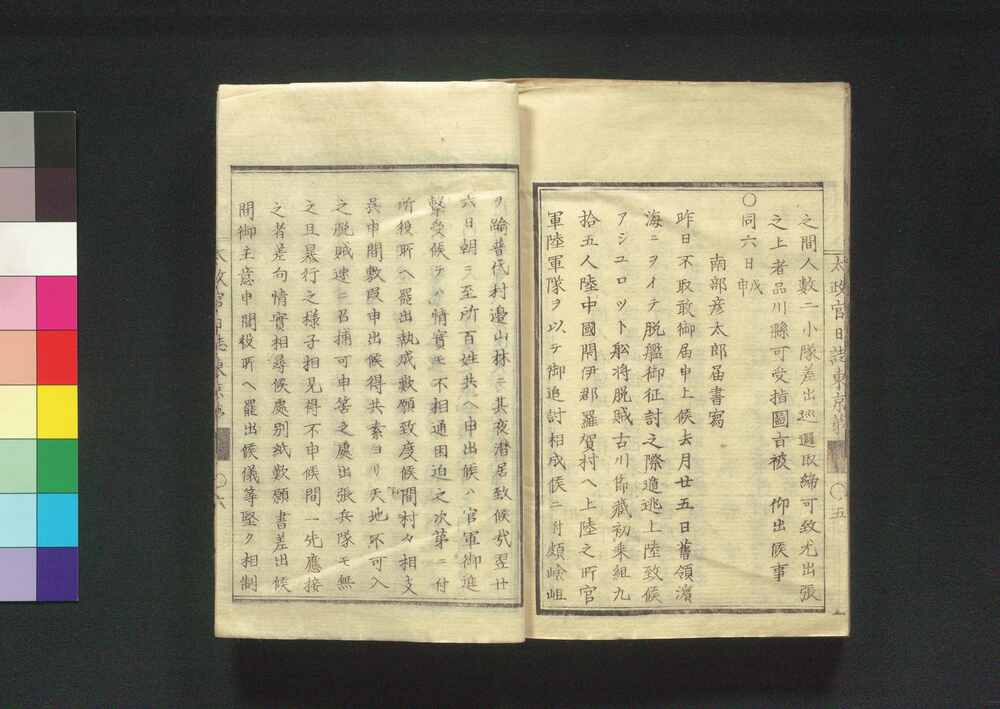 之間人數二小隊差出巡邏取締可致尤出張
之上者品川縣可受指圖旨被 仰出候事
○同六日申戌
南部彦太郎届書寫
昨日不取敢御届申上候去月廿五日舊領濱
海ニヲイテ脱艦御征討之際遁逃上陸致候
アシユロット舩将脱賊古川節藏初乗組九
拾五人陸中國閇伊郡羅賀村ヘ上陸之所官
軍陸軍隊ヲ以テ御追討相成候ニ付頗嶮岨
太政官日誌東京
○五
ヲ踰普代村邊山林ニ其夜潜居致候哉翌廿
六日朝ニ至所百姓共ヘ申出候ハ官軍御進
撃受候テハ情實モ不相通困迫之次第ニ付
所役所ヘ罷出執成歎願致度候間村々相支
呉申間敷段申出候得共素ヨリ天地不可入
之脱賊速ニ召捕可申筈之處出張兵隊モ無
之且暴行之様子相見得不申候間一先應接
之者差向情實相尋候處別紙歎願書差出候
間御主意申聞役所ヘ罷出候儀等堅ク相制
太政官日誌東京
○六